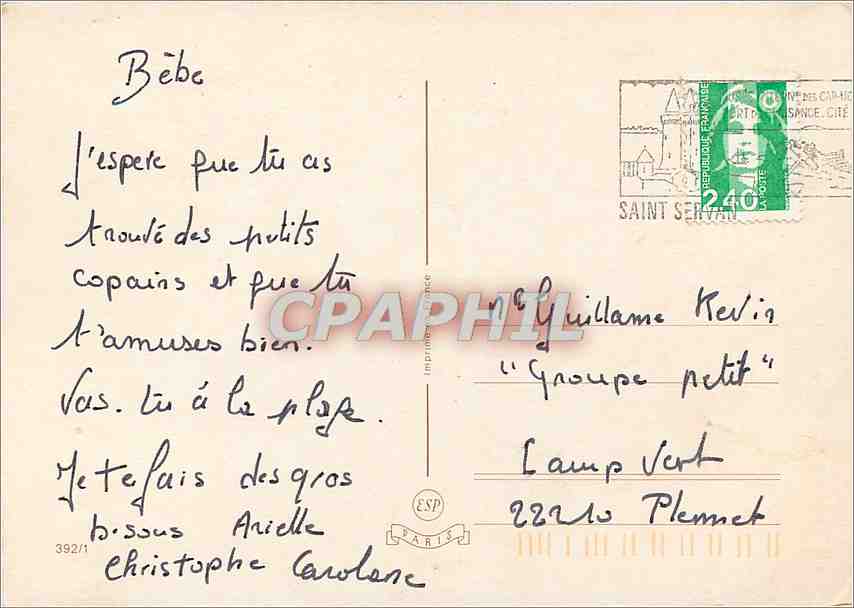 Bèbe
J'espere que tu as
trouvé des petits
copains et que tu
t'amuses bien.
Vas-tu à la plage.
Je te fais des gros
bisous Arielle
Christophe Carolane
392/1
Imprimé en France
ESP
PARIS
SAINT SERVAN
REPUBLIQUE FRANÇAISE
2,40
LA POSTE
Mr Guillame Kevin
"Groupe petit"
Camp Vert
22210 Plemet
CPAPHIL